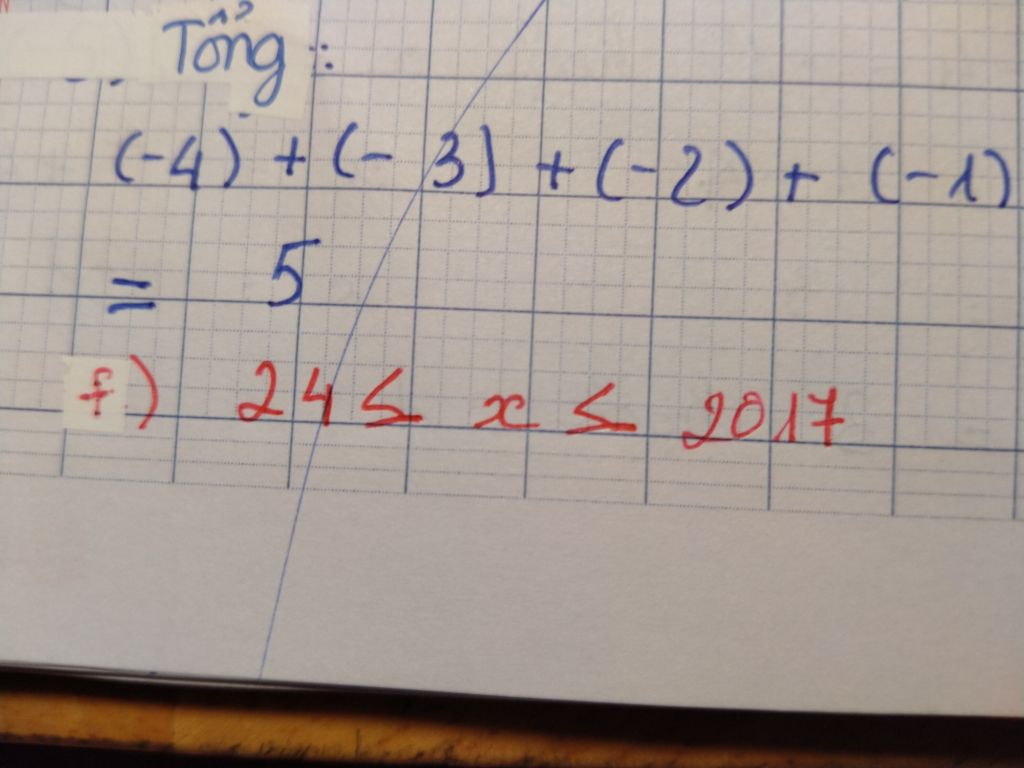 Tổng :
(-4) + (- 3) + (-2) + (-1)
= 5
f) 24 ≤ x ≤ 2017